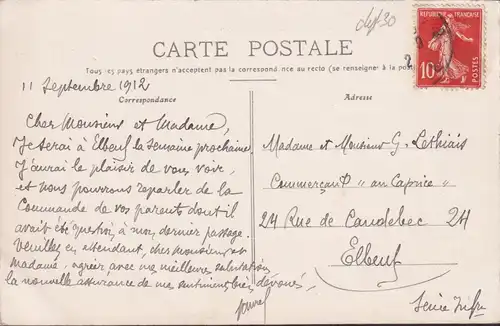 dept 30
CARTE POSTALE
Tous les pays étrangers n'acceptent pas la correspondance au recto (se renseigner à la poste)
REPUBLIQUE FRANÇAISE
10
POSTES
11 Septembre 1912
Correspondance
Adresse
Cher Monsieur et Madame,
Je serai à Elbeuf la semaine prochaine
J'aurai le plaisir de vous voir,
et nous pourrons reparler de la
Commande de vos parents dont il
avait été question à mon dernier passage.
Veuillez, en attendant, cher Monsieur et
Madame, agréer avec mes meilleures salutations
la nouvelle assurance de mes sentiments bien dévoués,
Madame et Monsieur G. Lethiais
Commerçant "au Caprice"
24 Rue de Caudebec 24
Elbeuf
Seine Infre